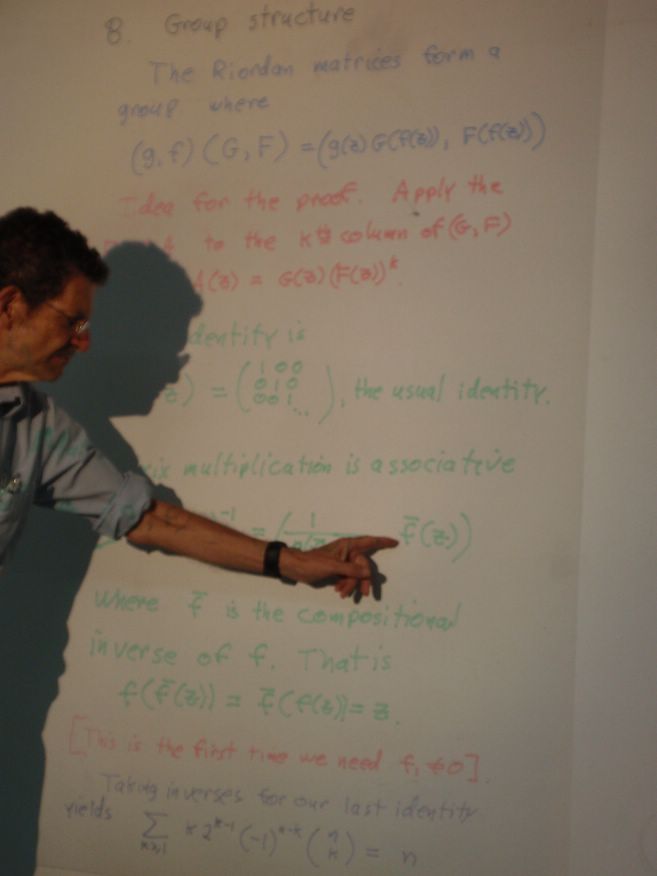 8. Group structure
The Riordan matrices form a
group where
(g, f) (G, F) = (g(z) G(f(z)), F(f(z)))
Idea for the proof. Apply the
to the kth column of (G, F)
A(z) = G(z) (F(z))^k.
dentity is
z) = (1 0 0 0 1 0 0 0 1 ...), the usual identity.
rix multiplication is associative
^-1 = (1/ f̄(z))
Where f̄ is the compositional
inverse of f. That is
f(f̄(z)) = f̄(f(z)) = z.
[This is the first time we need f₁ ≠ 0].
Taking inverses for our last identity
yields ∑_{k≥1} k 2^{k-1} (-1)^{n-k} (n k) = n